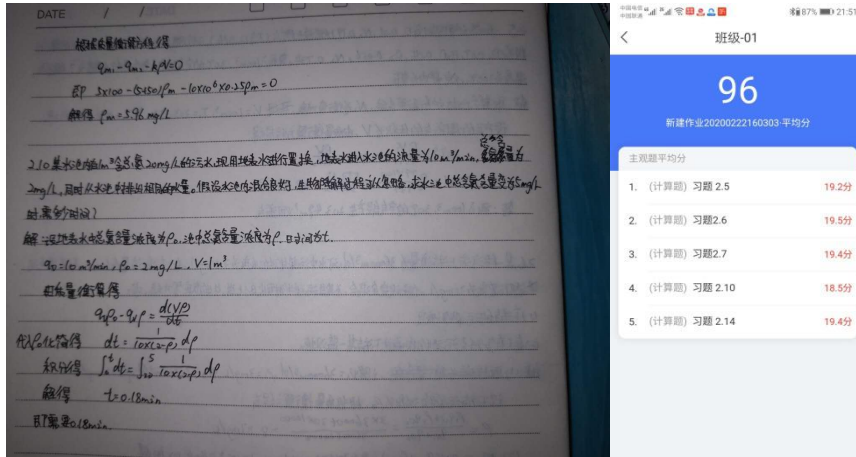 DATE / /
根据质量衡算方程得
qm₁-qm₂-kρV=0
即 5x100-(5+50)ρm-10x10⁶x0.25ρm=0
解得 ρm=5.96mg/L
2.10某水池内有1m³含总氮20mg/L的污水,现用地表水进行置换,地表水进入水池的流量为10m³/min,总氮含量为
2mg/L,同时从水池中排出相同的水量。假设水池内混合良好,生物降解过程可以忽略,求水池中总氮含量变为5mg/L
时,需多少时间?
解:设地表水中总氮含量浓度为ρ₀,池中总氮含量浓度为ρ,时间为t.
qv=10m³/min, ρ₀=2mg/L, V=1m³
由质量衡算得
qvρ₀-qvρ=d(Vρ)/dt
代入ρ₀化简得 dt=1/10x(2-ρ) dρ
积分得 ∫₀ᵗdt=∫₂₀⁵ 1/10x(2-ρ) dρ
解得 t=0.18min
即需要0.18min
中国电信
中国联通
87% 21:51
班级-01
96
新建作业20200222160303-平均分
主观题平均分
1. (计算题) 习题 2.5 19.2分
2. (计算题) 习题2.6 19.5分
3. (计算题) 习题2.7 19.4分
4. (计算题) 习题 2.10 18.5分
5. (计算题) 习题 2.14 19.4分